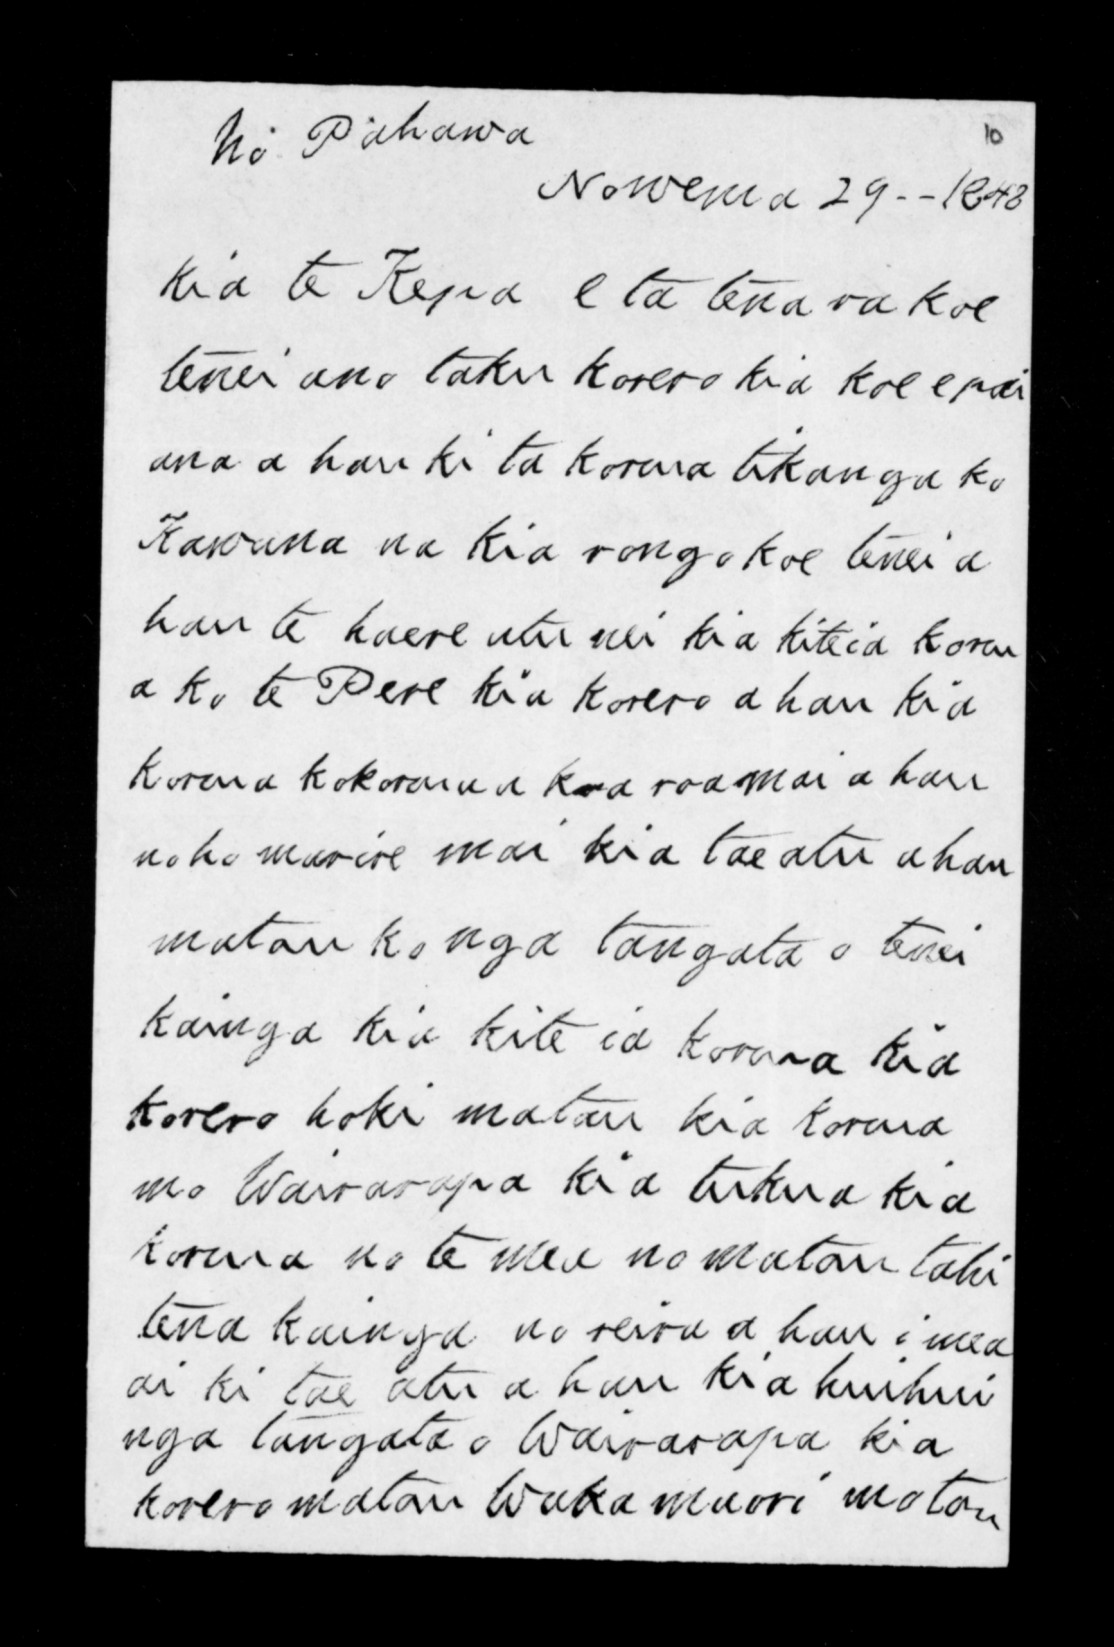 No Pahawa
10
Nowema 29 -- 1848
kia te Kepa e ta tena ra koe
tenei ano taku korero kia koe e pai
ana a hau ki ta korua tikanga ko
Kawana na kia rongo koe tenei a
hau te haere atu nei kia kiteia koru
a ko te Pere kia korero a hau kia
korua kokorua a kua roa mai a hau
noho marire mai kia tae atu a hau
matou ko nga tangata o tenei
kainga kia kite ia korua kia
korero hoki matou kia korua
mo Wairarapa kia tukua kia
korua no te mea no matou tahi
tena kainga no reira a hau i mea
ai ki tae atu a hau kia huihui
nga tangata o Wairarapa kia
korero matou Waka maori matou